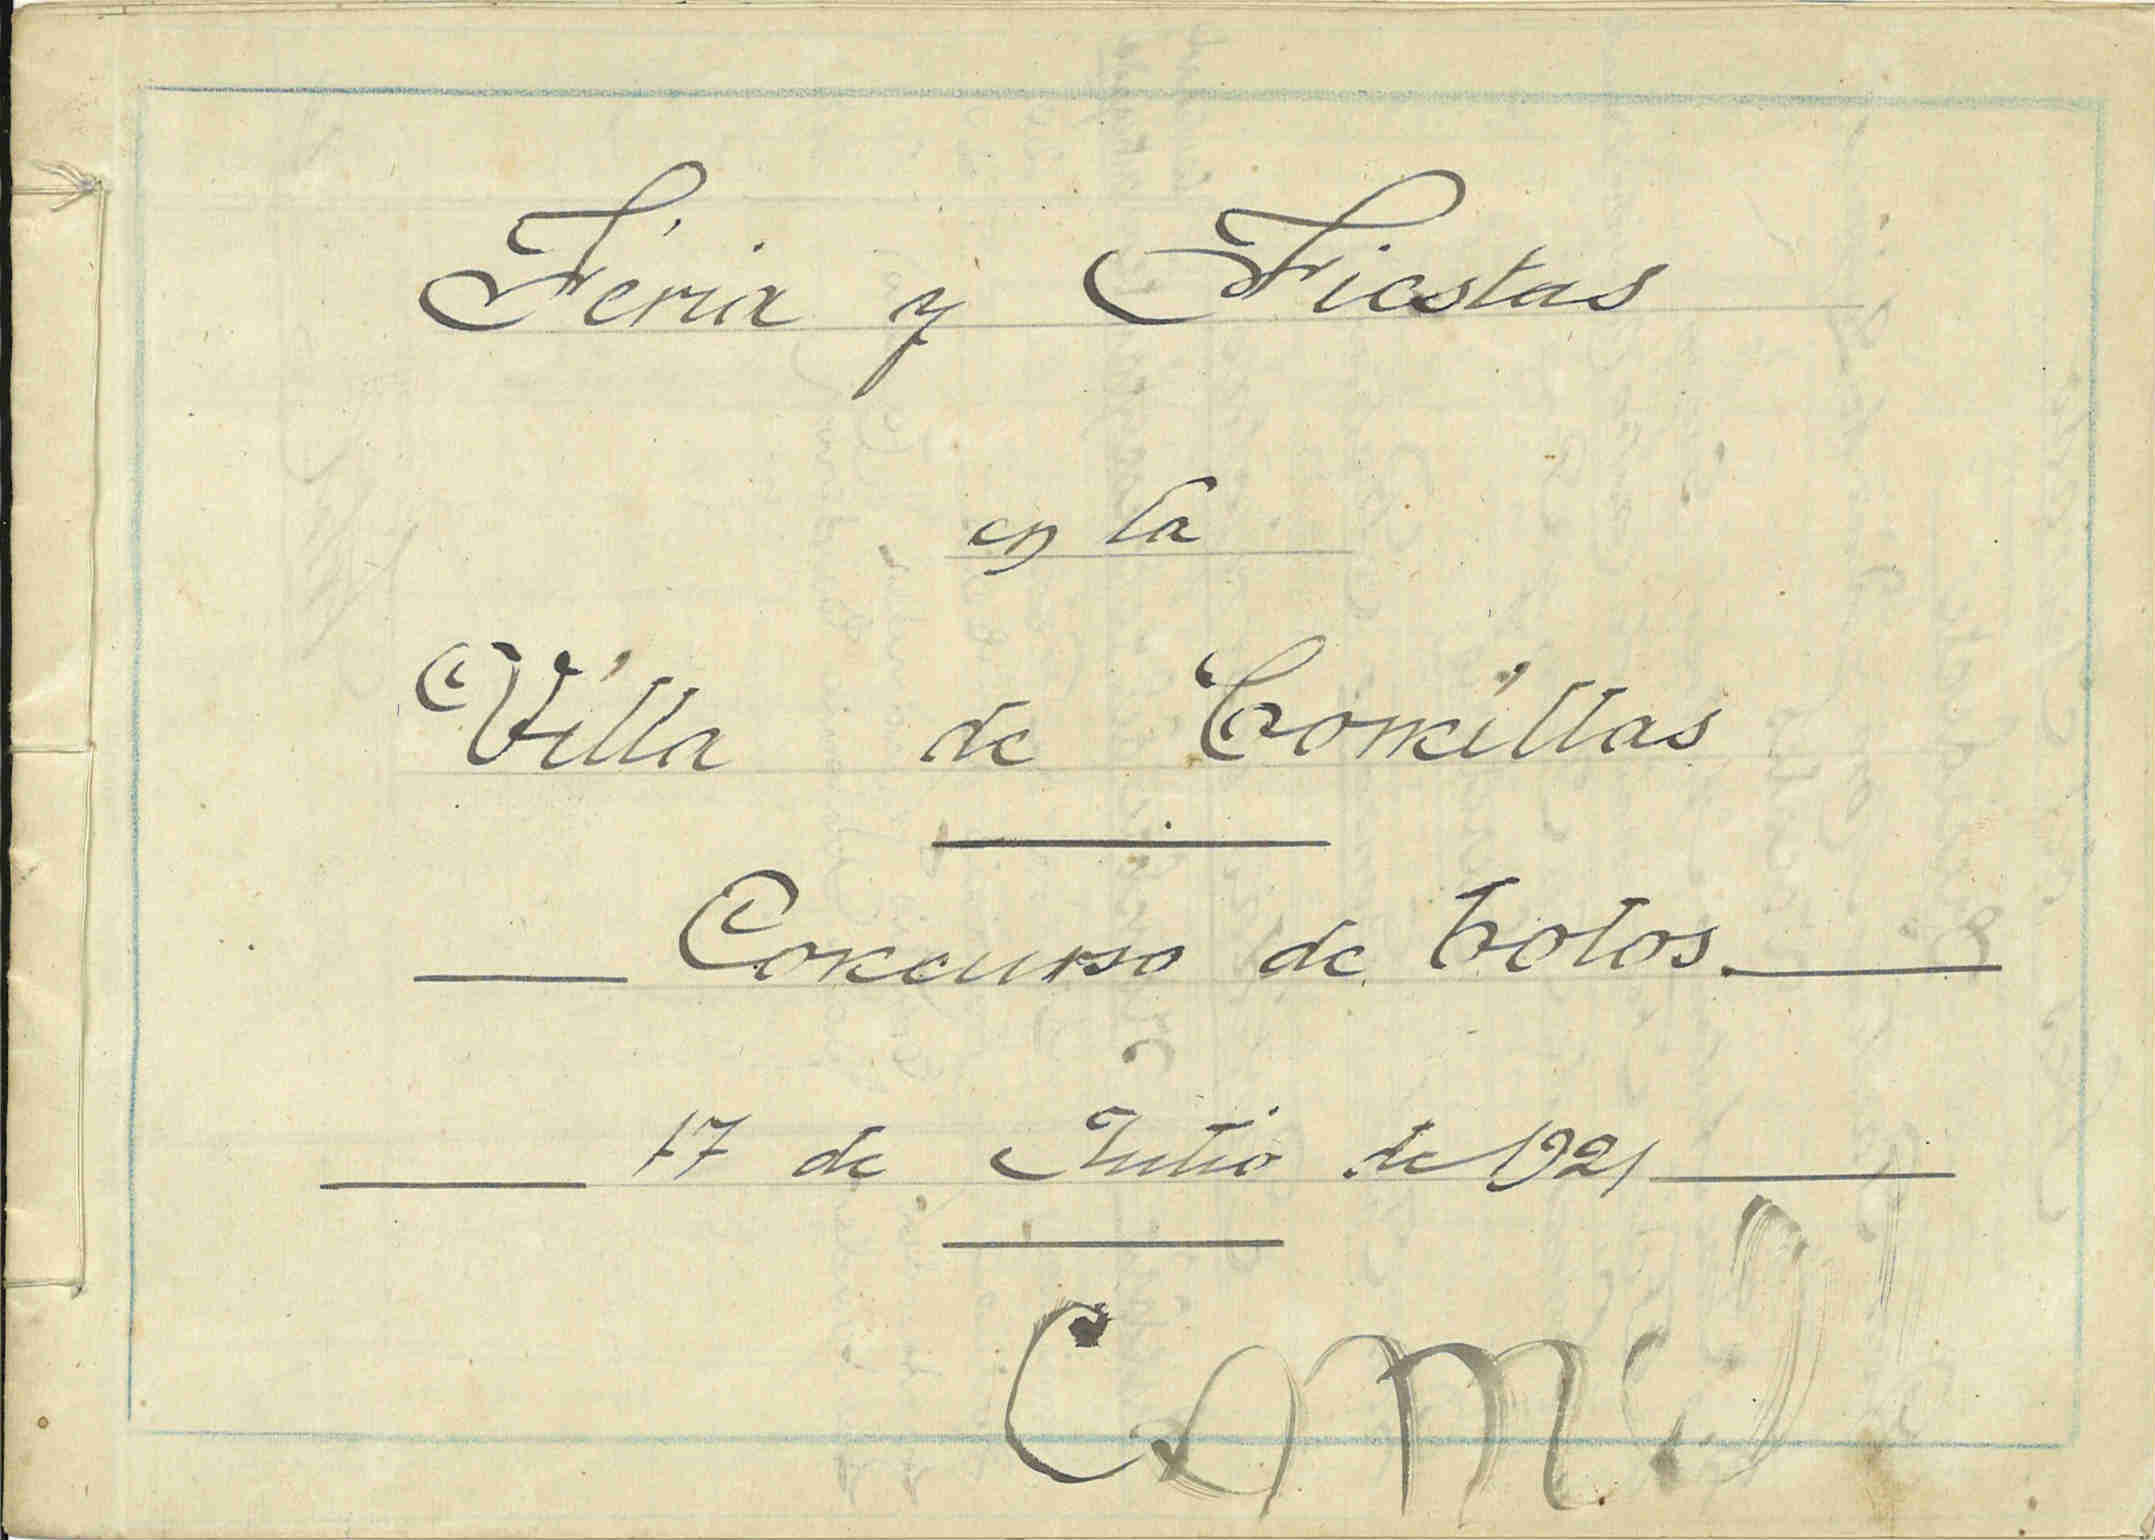 Feria y Fiestas
en la
Villa de Comillas
Concurso de bolos.
17 de Julio de 1921